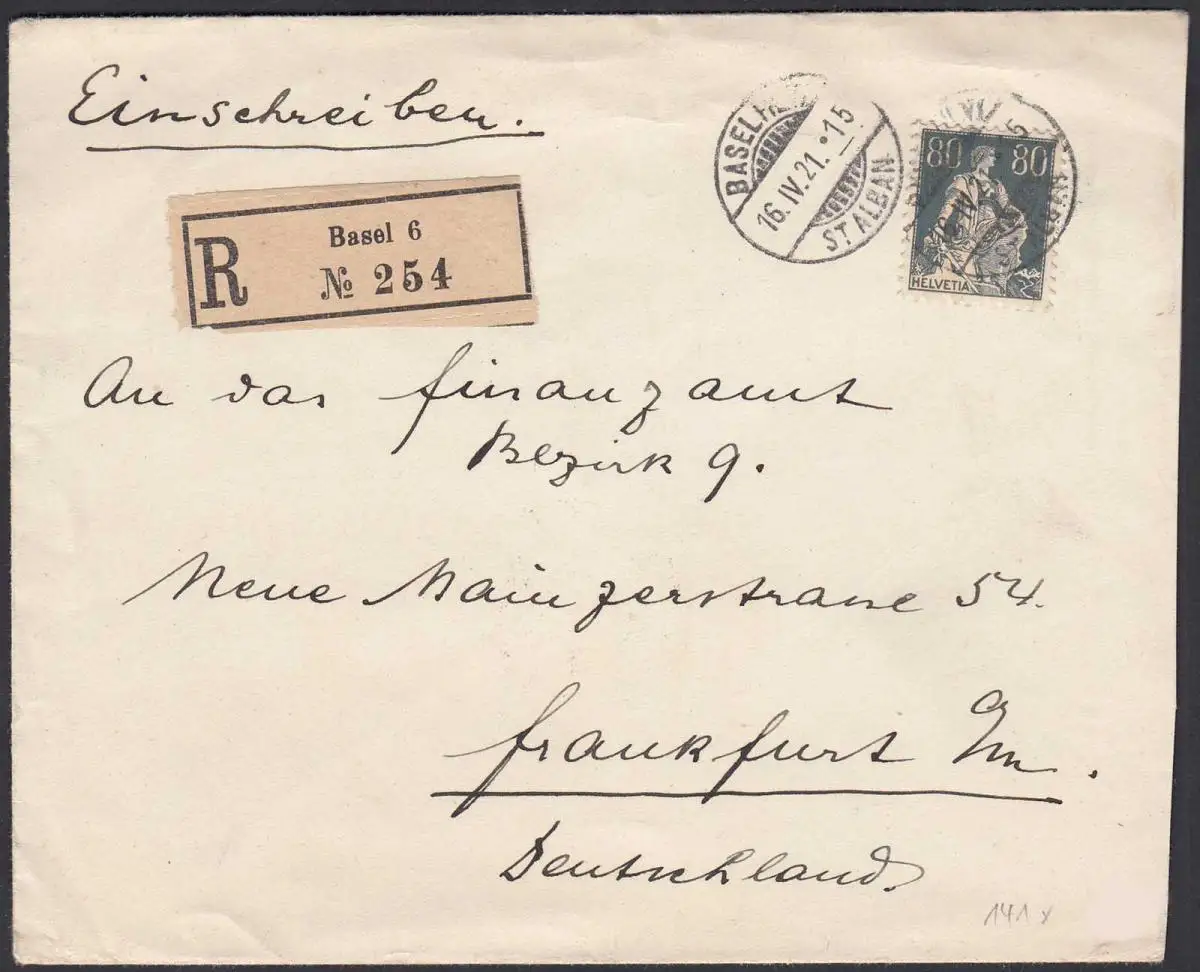 Einschreiben.
BASEL
16.IV.21.-15
ST ALBAN
80 80
HELVETIA
R
Basel 6
№ 254
An das Finanzamt
Bezirk 9.
Neue Mainzerstrasse 54.
Frankfurt a/m.
Deutschland.
141 x